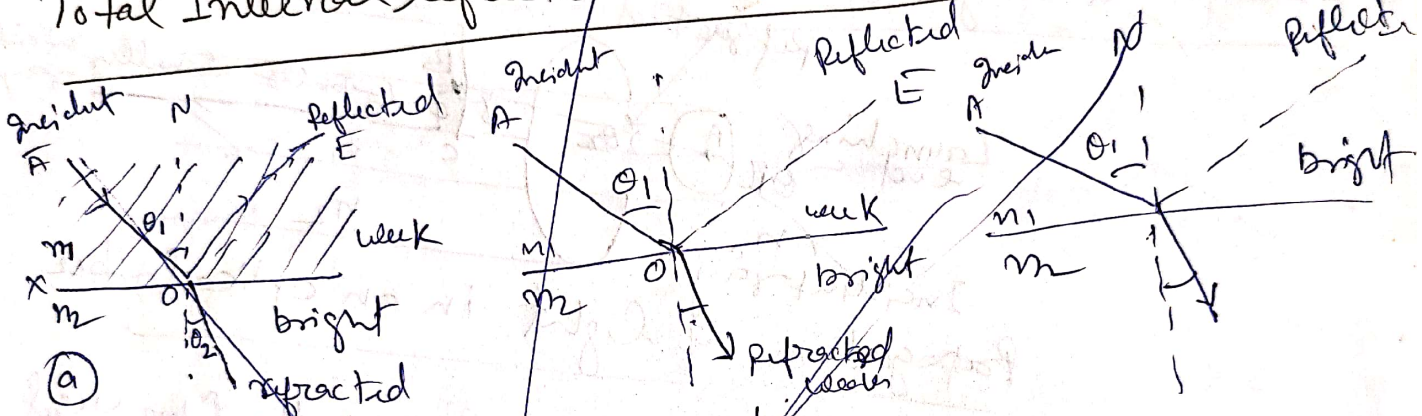 Total Internal
Incident N Reflected
A E
θ1
n1 weak
X O
n2 bright
θ2
a refracted
Incident Reflected
A E
θ1
n1 weak
O
n2 bright
Refracted
weak
A N Reflect
θ1 bright
n1
n2